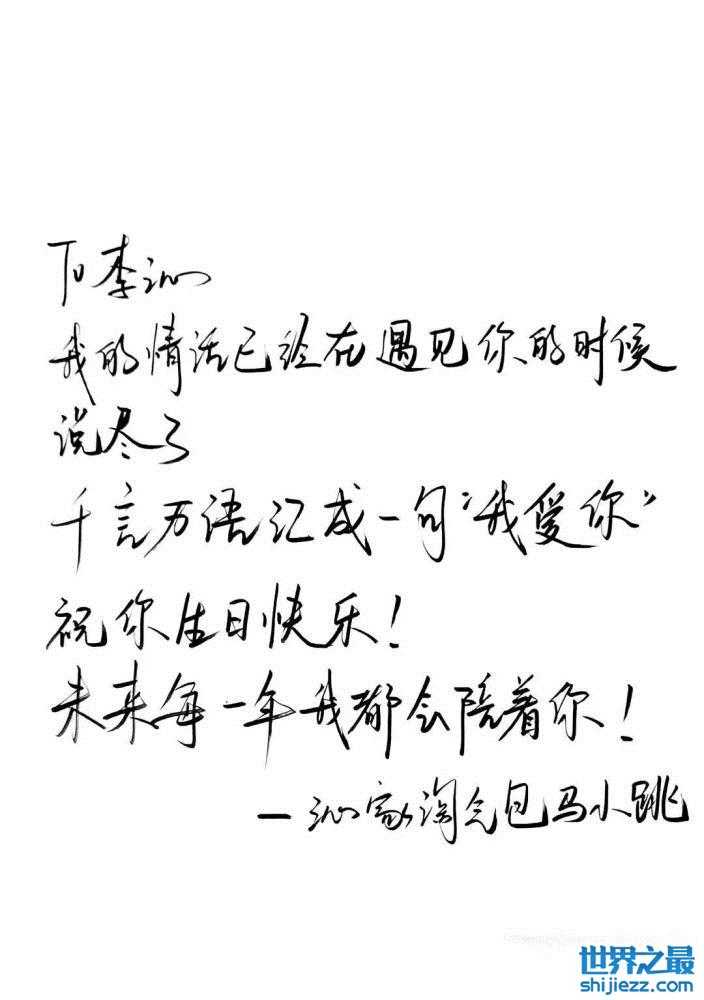 To 李沁
我的情话已经在遇见你的时候
说尽了
千言万语汇成一句“我爱你”
祝你生日快乐！
未来每一年我都会陪着你！
—沁家淘气包马小跳
世界之最
shijiezz.com